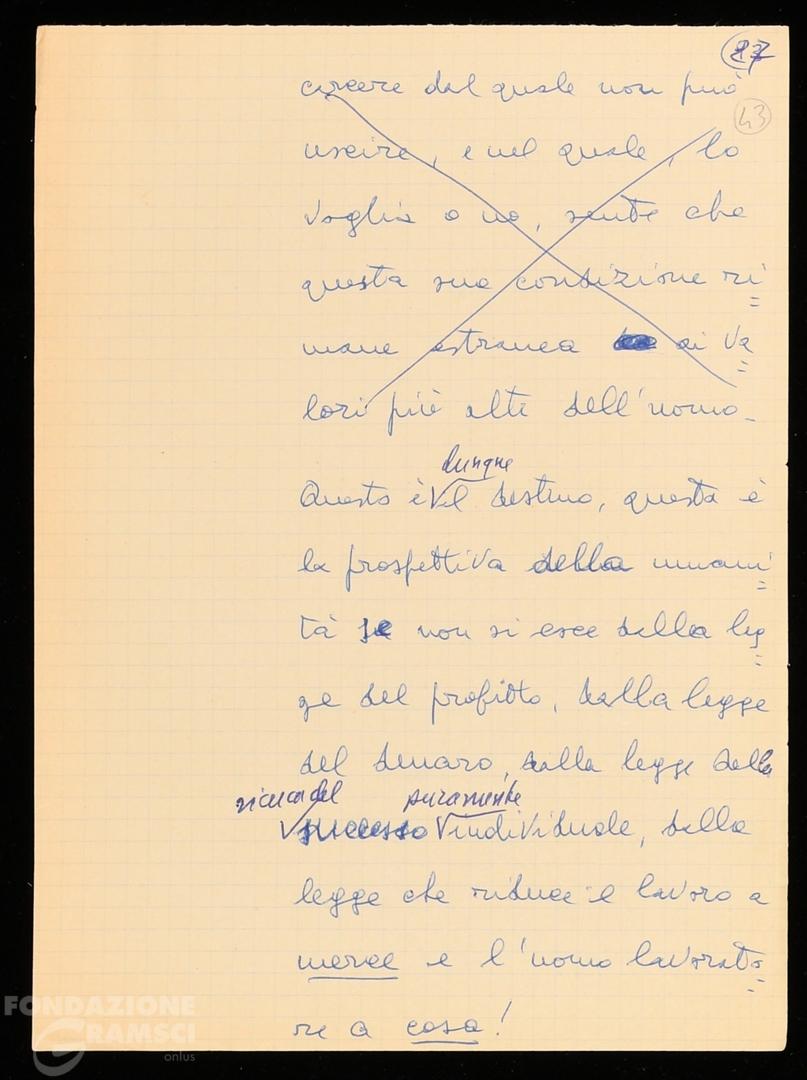 87
43
carcere dal quale non può
uscire, e nel quale, lo
voglia o no, sente che
questa sua condizione ri=
mane estranea ai va=
lori più alti dell'uomo.
dunque
Questo è il destino, questa è
la prospettiva della umani=
tà se non si esce dalla leg=
ge del profitto, dalla legge
del denaro, dalla legge della
ricerca del puramente
successo individuale, dalla
legge che riduce il lavoro a
merce e l'uomo lavorato=
re a cosa!
FONDAZIONE
GRAMSCI
onlus